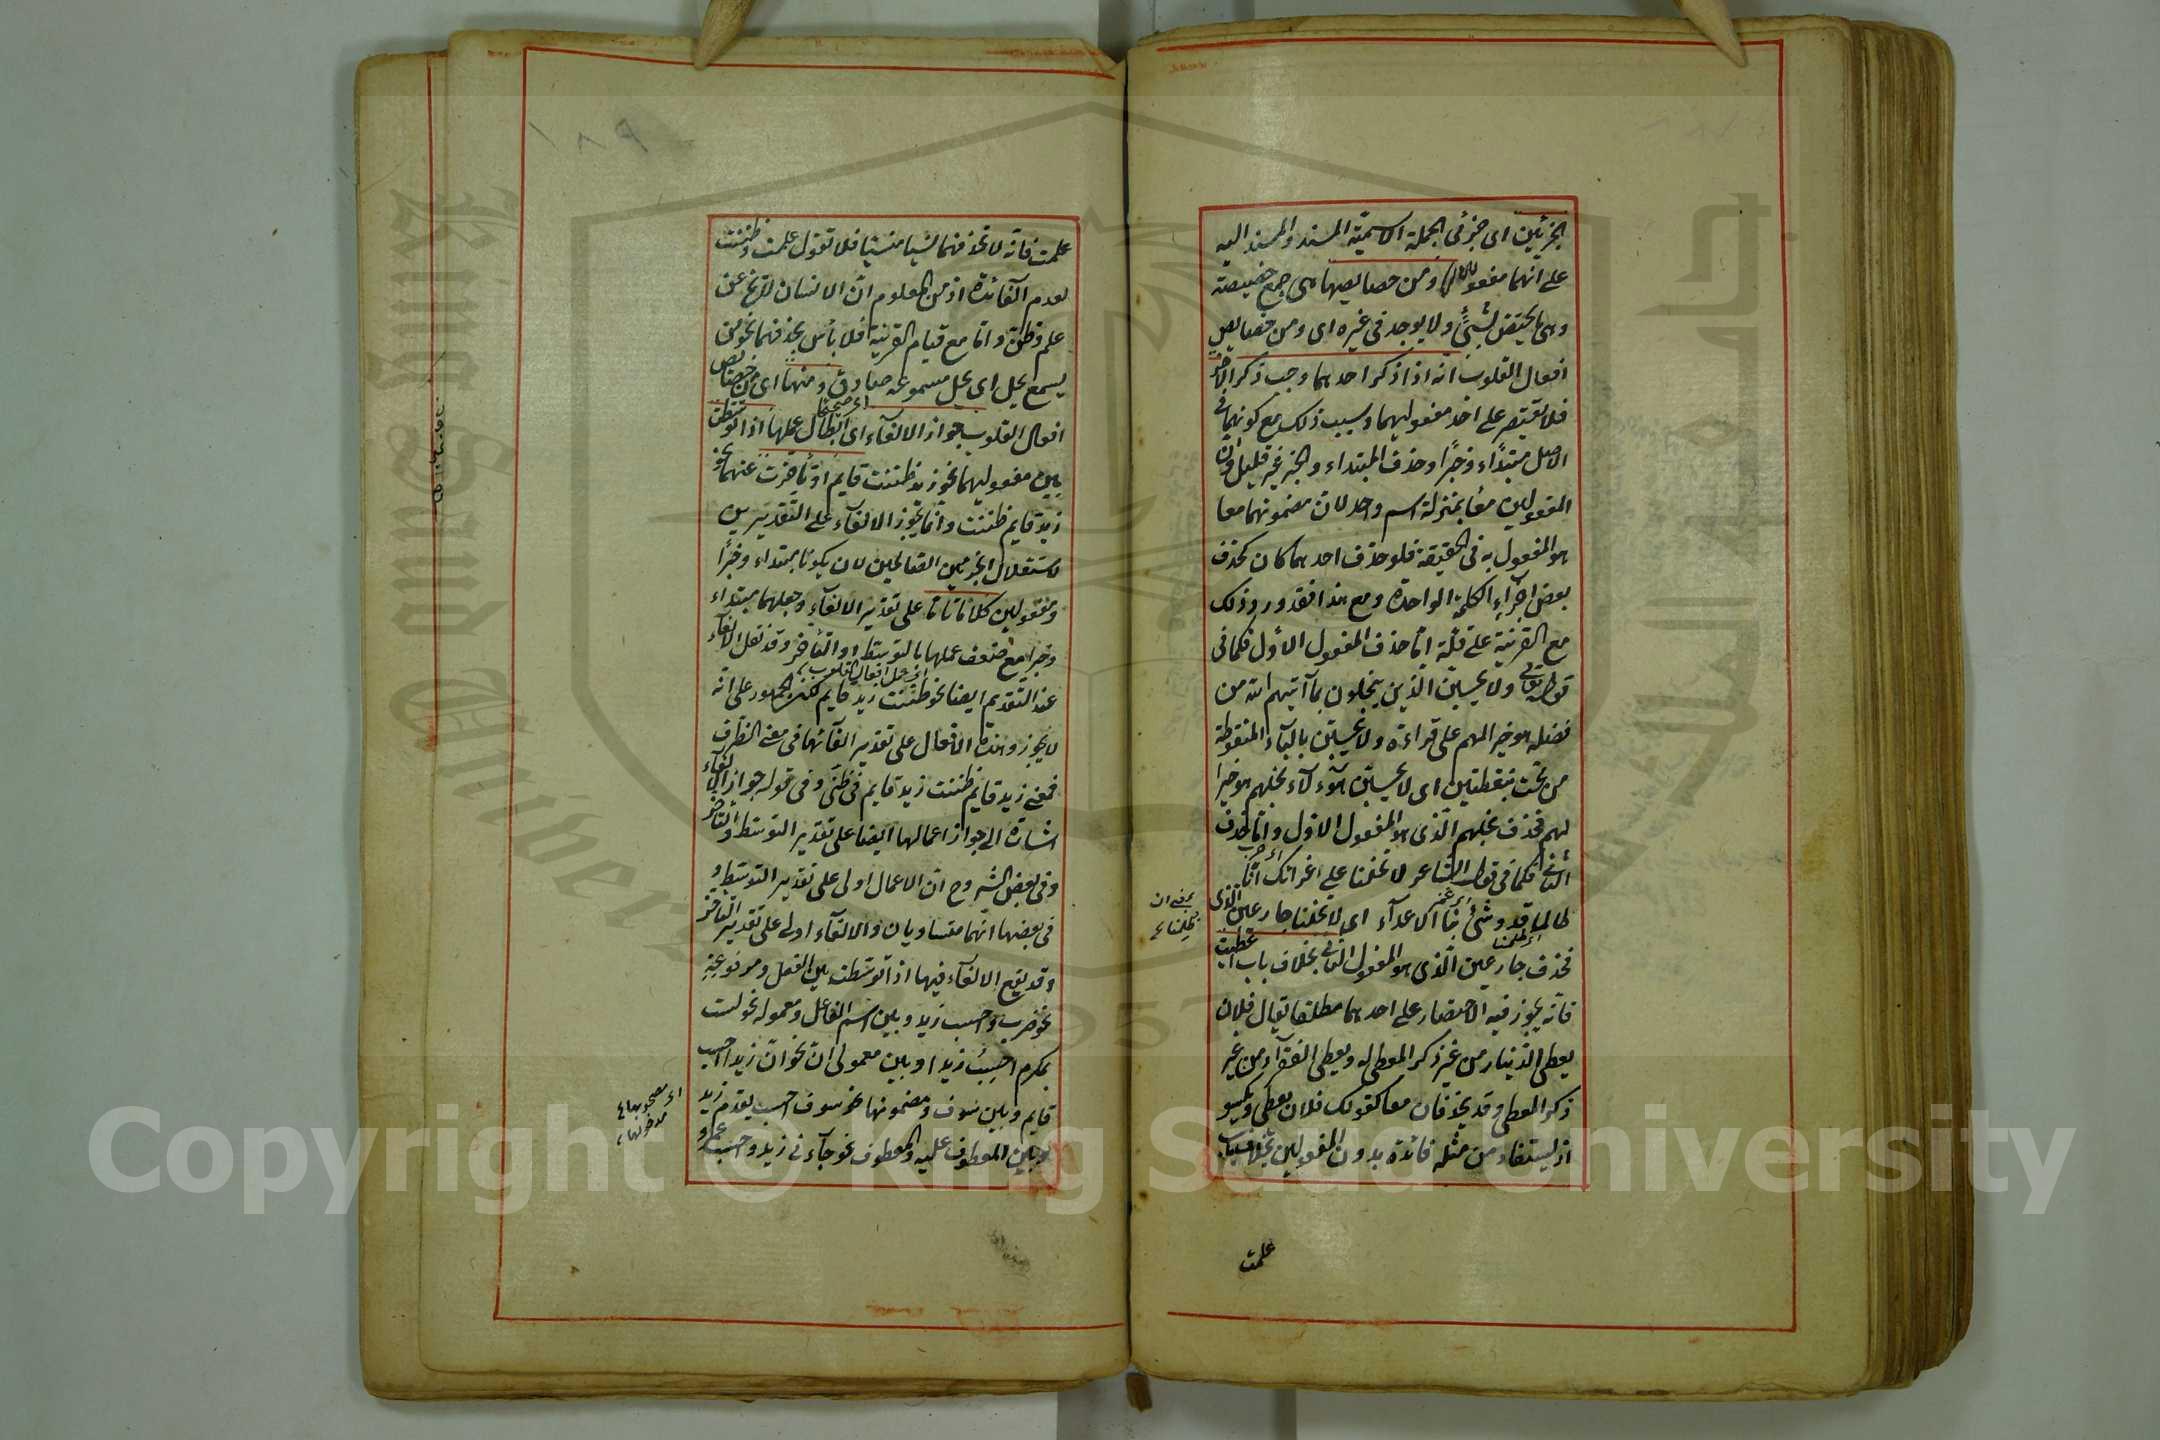 الجزئين اى جزئى الجملة الاسمية المسند والمسند اليه
على انهما مفعولان ومن خصايصها هى جمع خصيصة
وهى ما يختص بشئ ولا يوجد فى غيره اى ومن خصايص
افعال القلوب انه اذا ذكر احدهما وجب ذكر الاخر
فلا يقتصر على احد مفعوليهما وسبب ذلك مع كونهما فى
الاصل مبتدأ وخبرًا وحذف المبتداء والخبر غير قليل وان
المفعولين معًا بمنزلة اسم واحد لان مضمونهما معا
هو المفعول به فى الحقيقة فلو حذف احدهما كان كحذف
بعض اجزاء الكلمة الواحدة ومع هذا فقد ورد ذلك
مع القرينة على قلة اما حذف المفعول الاول فكما فى
قوله تعالى ولا يحسبن الذين يبخلون بما آتيهم الله من
فضله هو خيرا لهم على قراءة ولا يحسبن بالياء المنقوطة
من تحت بنقطتين اى لا يحسبن هؤلاء بخلهم هو خيرا
لهم فحذف بخلهم الذى هو المفعول الاول واما حذف
الثانى فكما فى قول الشاعر لا تخلنا على اغرائك انا
طالما قد وشى بنا الاعداء اى لا تخلنا جازعين
فحذف جازعين الذى هو المفعول الثانى بخلاف باب اعطيت
فانه يجوز فيه الاقتصار على احدهما مطلقا يقال فلان
يعطى الدينار من غير ذكر المعطى له ويعطى الفقراء من غير
ذكر المعطى وقد يحذفان معا كقولك فلان يعطى ويكسو
اذ يستفاد من مثله فائدة بدون المفعولين بخلاف باب
علمت
علمت فانه لا تحذفهما نسيا منسيا فلا تقول علمت وظننت
لعدم الفائدة اذ من المعلوم ان الانسان لا يخ عن
علم وظن واما مع قيام القرينة فلا بأس بحذفهما نحو من
يسمع يخل اى يخل مسموعه صادقا ومنها اى من خصايص
افعال القلوب جواز الالغاء اى ابطال عملها اذا توسطت
بين مفعوليهما نحو زيد ظننت قايم او تأخرت عنهما نحو
زيد قايم ظننت وانما يجوز الالغاء على التقديرين
لاستقلال الجزئين الصالحين لان يكونا مبتداء وخبرًا
ومفعولين كلاما تاما على تقدير الالغاء وجعلهما مبتداء
وخبرا مع ضعف عملها بالتوسط او التأخر وقد نقل الالغاء
عند التقديم ايضا نحو ظننت زيد قايم لكن الجمهور على انه
لا يجوز وهذه الافعال على تقدير الغائها فى معنى الظرف
فمعنى زيد قايم ظننت زيد قايم فى ظنى وفى قوله جواز الالغاء
اشارة الى جواز اعمالها ايضا على تقدير التوسط والتأخر
وفى بعض الشروح ان الاعمال اولى على تقدير التوسط و
فى بعضها انهما متساويان والالغاء اولى على تقدير التأخر
وقد يقع الالغاء فيها اذا توسطت بين الفعل ومرفوعه
نحو ضرب احسب زيد وبين اسم الفاعل ومعموله نحو لست
بمكرم احسِبُ زيدا وبين معمولى ان نحو ان زيدا احسب
قايم وبين سوف ومضمونها نحو سوف احسب يقدم زيد
وبين المعطوف عليه والمعطوف نحو جاءنى زيد واحسب عمرو
Copyright © King Saud University